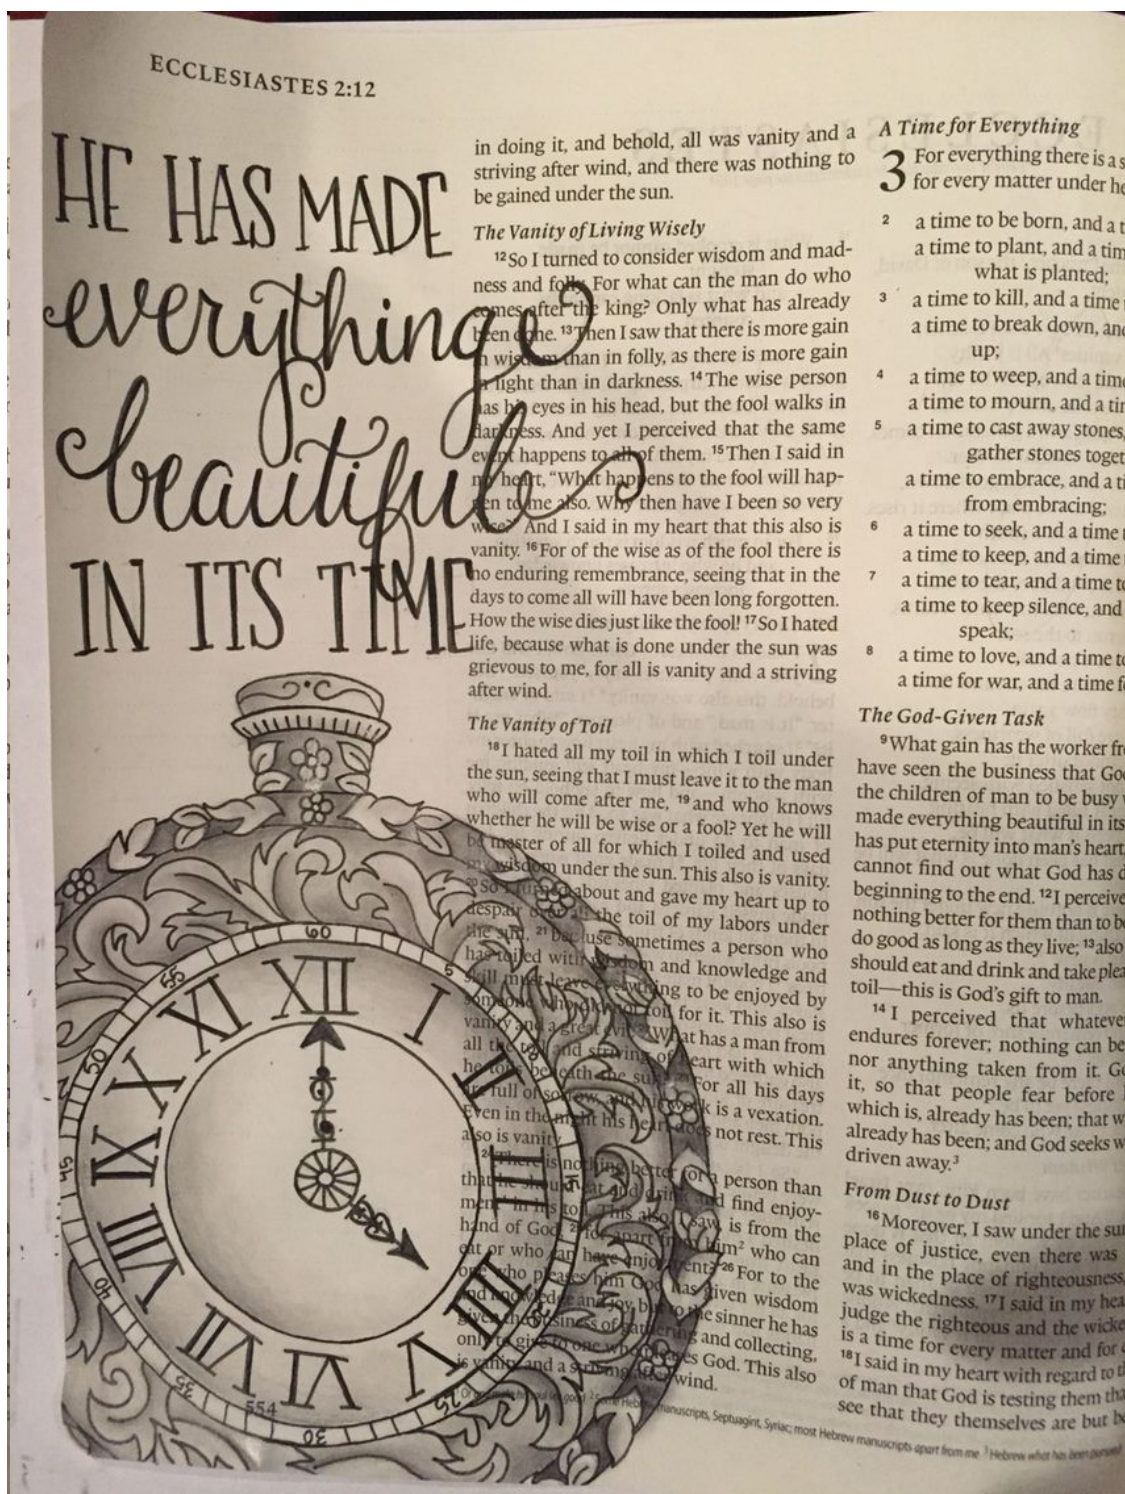 ECCLESIASTES 2:12
HE HAS MADE
everything
beautiful
IN ITS TIME
in doing it, and behold, all was vanity and a
striving after wind, and there was nothing to
be gained under the sun.
The Vanity of Living Wisely
12 So I turned to consider wisdom and mad-
ness and folly. For what can the man do who
comes after the king? Only what has already
been done. 13 Then I saw that there is more gain
in wisdom than in folly, as there is more gain
in light than in darkness. 14 The wise person
has his eyes in his head, but the fool walks in
darkness. And yet I perceived that the same
event happens to all of them. 15 Then I said in
my heart, “What happens to the fool will hap-
pen to me also. Why then have I been so very
wise?” And I said in my heart that this also is
vanity. 16 For of the wise as of the fool there is
no enduring remembrance, seeing that in the
days to come all will have been long forgotten.
How the wise dies just like the fool! 17 So I hated
life, because what is done under the sun was
grievous to me, for all is vanity and a striving
after wind.
The Vanity of Toil
18 I hated all my toil in which I toil under
the sun, seeing that I must leave it to the man
who will come after me, 19 and who knows
whether he will be wise or a fool? Yet he will
be master of all for which I toiled and used
my wisdom under the sun. This also is vanity.
20 So I turned about and gave my heart up to
despair over all the toil of my labors under
the sun, 21 because sometimes a person who
has toiled with wisdom and knowledge and
skill must leave everything to be enjoyed by
someone who did not toil for it. This also is
vanity and a great evil. 22 What has a man from
all the toil and striving of heart with which
he toils beneath the sun? 23 For all his days
are full of sorrow, and his work is a vexation.
Even in the night his heart does not rest. This
also is vanity.
24 There is nothing better for a person than
that he should eat and drink and find enjoy-
ment in his toil. This also, I saw, is from the
hand of God, 25 for apart from him2 who can
eat or who can have enjoyment? 26 For to the
one who pleases him God has given wisdom
and knowledge and joy, but to the sinner he has
given the business of gathering and collecting,
only to give to one who pleases God. This also
is vanity and a striving after wind.
A Time for Everything
3 For everything there is a s
for every matter under he
2 a time to be born, and a t
a time to plant, and a tim
what is planted;
3 a time to kill, and a time
a time to break down, and
up;
4 a time to weep, and a time
a time to mourn, and a tim
5 a time to cast away stones,
gather stones toget
a time to embrace, and a ti
from embracing;
6 a time to seek, and a time
a time to keep, and a time
7 a time to tear, and a time to
a time to keep silence, and
speak;
8 a time to love, and a time to
a time for war, and a time f
The God-Given Task
9 What gain has the worker fr
have seen the business that Go
the children of man to be busy
made everything beautiful in its
has put eternity into man's heart,
cannot find out what God has d
beginning to the end. 12 I perceive
nothing better for them than to be
do good as long as they live; 13 also
should eat and drink and take plea
toil—this is God's gift to man.
14 I perceived that whatever
endures forever; nothing can be
nor anything taken from it. Go
it, so that people fear before
which is, already has been; that w
already has been; and God seeks w
driven away.3
From Dust to Dust
16 Moreover, I saw under the su
place of justice, even there was
and in the place of righteousness,
was wickedness. 17 I said in my hea
judge the righteous and the wicke
is a time for every matter and for
18 I said in my heart with regard to t
of man that God is testing them tha
see that they themselves are but b
2 Some Hebrew manuscripts, Septuagint, Syriac; most Hebrew manuscripts apart from me 3 Hebrew what has been pursued
60
5
25
30
35
40
45
50
55
XII
I
II
III
IIII
V
VI
VII
VIII
IX
X
XI
554